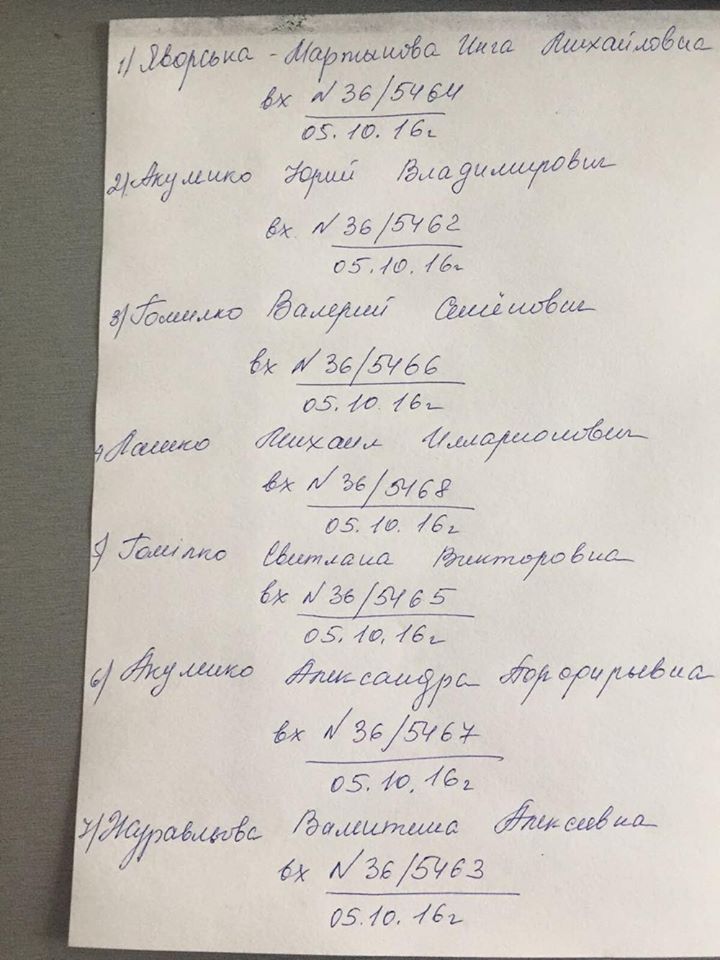 1) Яворська - Мартынова Инга Михайловна
вх N 36/5464
05.10.16г
2) Акуленко Юрий Владимирович
вх N 36/5462
05.10.16г
3) Гомилко Валерий Семёнович
вх N 36/5466
05.10.16г
4) Михаил Илларионович
вх N 36/5468
05.10.16г
5) Гомілко Свитлана Викторовна
вх N 36/5465
05.10.16г
6) Акуленко Александра Порфирьевна
вх N 36/5467
05.10.16г
7) Журавльова Валентина Алексеевна
вх N 36/5463
05.10.16г